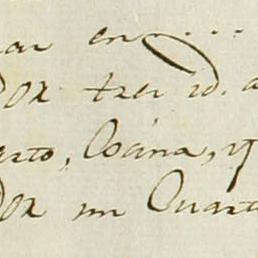 ar en....
Por tres id. a
arto, Cocina, y
Por un Quarto